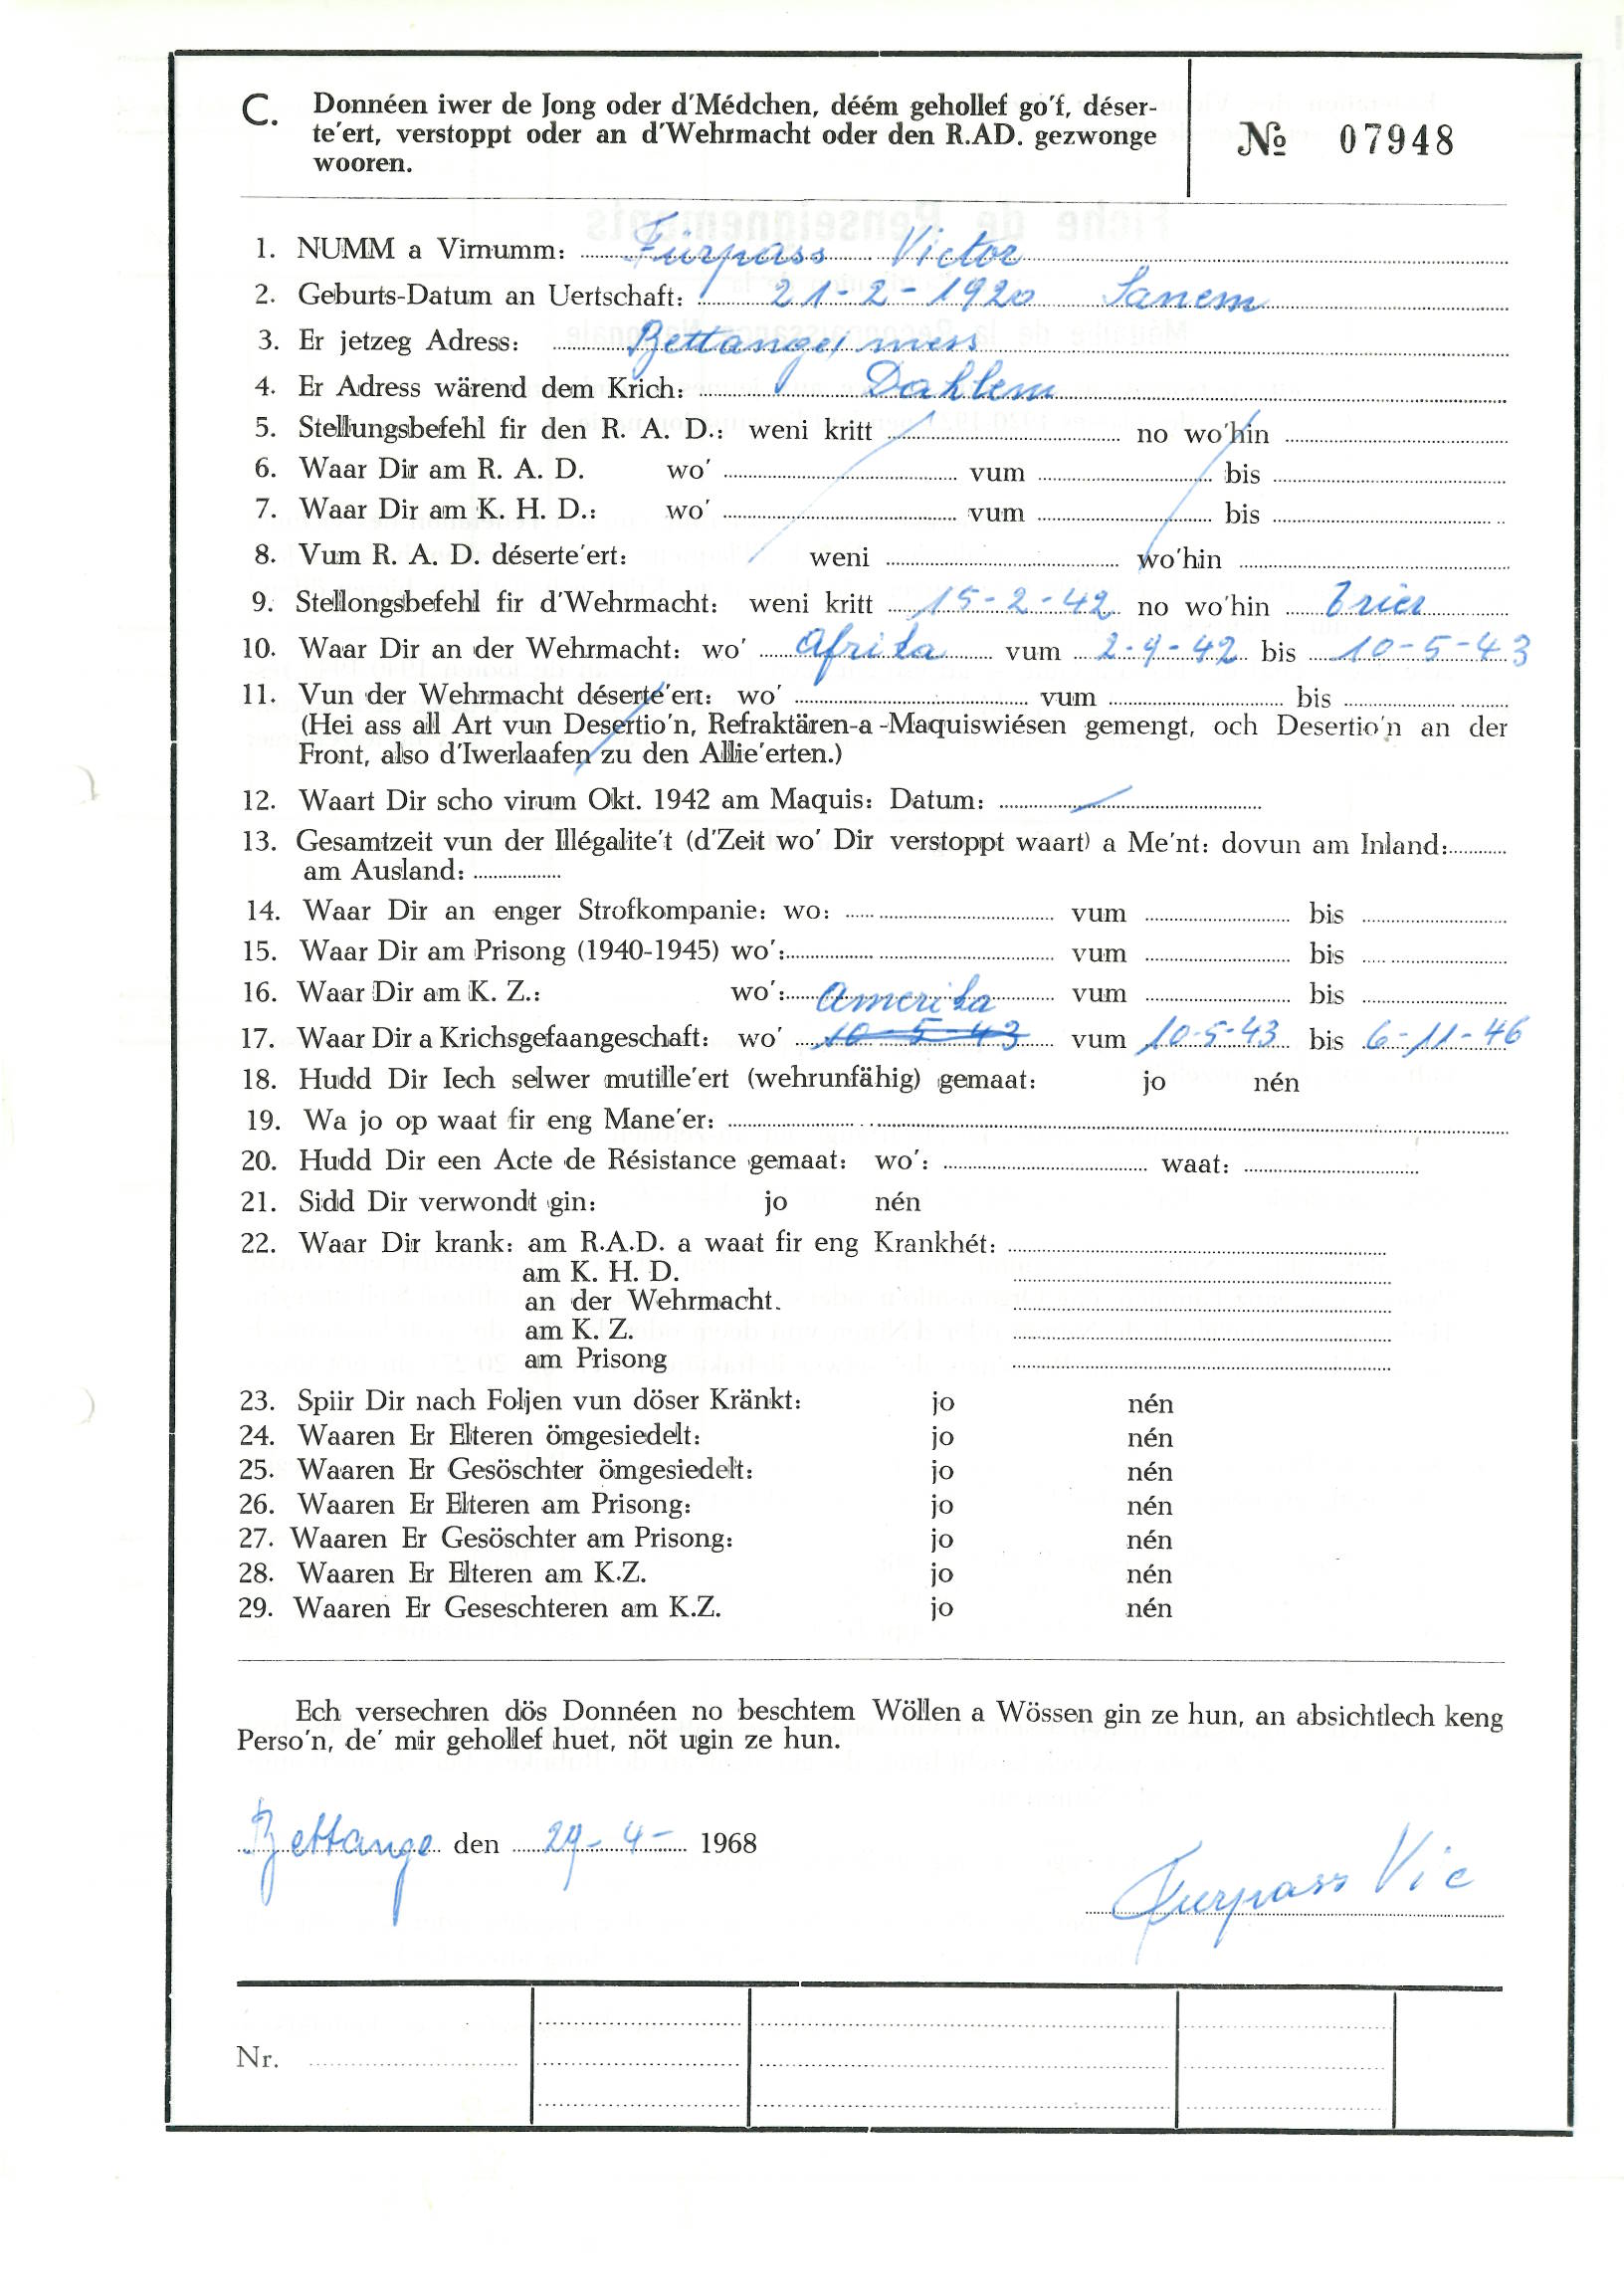 C. Donnéen iwer de Jong oder d'Médchen, déém gehollef go'f, déser-
te'ert, verstoppt oder an d'Wehrmacht oder den R.AD. gezwonge
wooren.
№ 07948
1. NUMM a Virnumm: Fürpass Victor
2. Geburts-Datum an Uertschaft: 21-2-1920 Sanem
3. Er jetzeg Adress: Bettange/mess
4. Er Adress wärend dem Krich: Dahlem
5. Stellungsbefehl fir den R. A. D.: weni kritt no wo'hin
6. Waar Dir am R. A. D. wo' vum bis
7. Waar Dir am K. H. D.: wo' vum bis
8. Vum R. A. D. déserte'ert: weni wo'hin
9. Stellongsbefehl fir d'Wehrmacht: weni kritt 15-2-42 no wo'hin Trier
10. Waar Dir an der Wehrmacht: wo' Afrika vum 2-9-42 bis 10-5-43
11. Vun der Wehrmacht déserte'ert: wo' vum bis
(Hei ass all Art vun Desertio'n, Refraktären-a-Maquiswiésen gemengt, och Desertio'n an der
Front, also d'Iwerlaafen zu den Allie'erten.)
12. Waart Dir scho virum Okt. 1942 am Maquis: Datum:
13. Gesamtzeit vun der Illégalite't (d'Zeit wo' Dir verstoppt waart) a Me'nt: dovun am Inland:
am Ausland:
14. Waar Dir an enger Strofkompanie: wo: vum bis
15. Waar Dir am Prisong (1940-1945) wo': vum bis
16. Waar Dir am K. Z.: wo': vum bis
Amerika
17. Waar Dir a Krichsgefaangeschaft: wo' 10-5-43 vum 10-5-43 bis 6-11-46
18. Hudd Dir Iech selwer mutille'ert (wehrunfähig) gemaat: jo nén
19. Wa jo op waat fir eng Mane'er:
20. Hudd Dir een Acte de Résistance gemaat: wo': waat:
21. Sidd Dir verwondt gin: jo nén
22. Waar Dir krank: am R.A.D. a waat fir eng Krankhét:
am K. H. D.
an der Wehrmacht.
am K. Z.
am Prisong
23. Spiir Dir nach Foljen vun döser Kränkt: jo nén
24. Waaren Er Elteren ömgesiedelt: jo nén
25. Waaren Er Gesöschter ömgesiedelt: jo nén
26. Waaren Er Elteren am Prisong: jo nén
27. Waaren Er Gesöschter am Prisong: jo nén
28. Waaren Er Elteren am K.Z. jo nén
29. Waaren Er Geseschteren am K.Z. jo nén
Ech versechren dös Donnéen no beschtem Wöllen a Wössen gin ze hun, an absichtlech keng
Perso'n, de' mir gehollef huet, nöt ugin ze hun.
Bettange den 29-4- 1968
Furpass Vic
Nr.